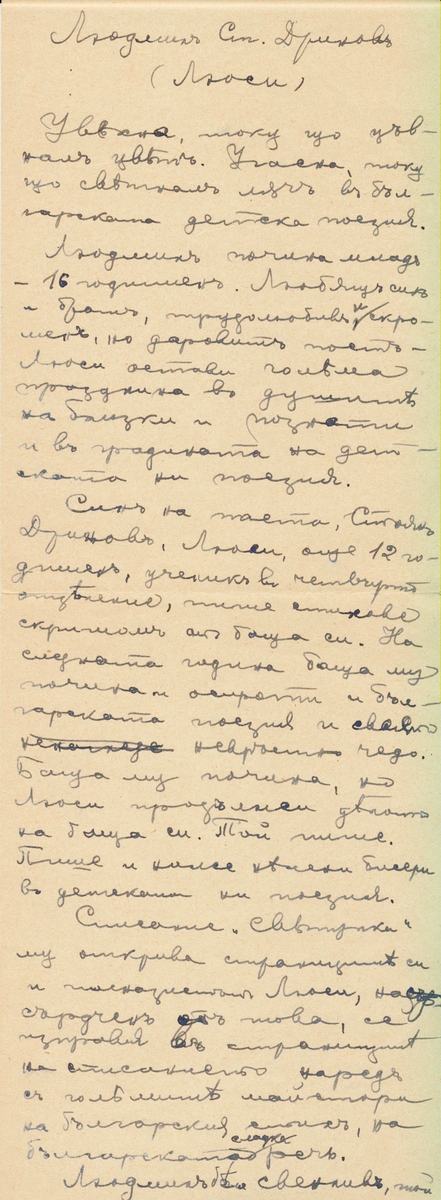 Людмилъ Ст. Дриновъ
(Люси)
Увѣхна, току що цъв-
налъ цвѣтъ. Угасна, току
що свѣтналъ лѫчъ въ бъл-
гарската детска поезия.
Людмилъ почина младъ
- 16 годишенъ. Любящъ синъ
и братъ, трудолюбивъ и скро-
менъ, но даровитъ поетъ -
Люси остави голѣма
празднина въ душитѣ
на близки и познати
и въ градината на дет-
ската ни поезия.
Синъ на поета, Стоянъ
Дриновъ, Люси, още 12 го-
дишенъ, ученикъ въ четвърто
отдѣление, пише стихове
скришомъ отъ баща си. На
следната година баща му
почина и осироти и бъл-
гарската поезия и своето
невръстно чедо.
Баща му почина, но
Люси продължи дѣлото
на баща си. Той пише.
Пише и ниже нѣжни бисери
въ детската ни поезия.
Списание „Свѣтулка"
му открива страницитѣ си
и Люси,
сърдченъ отъ това, се
изправя въ страницитѣ
на списанието наредъ
съ голѣмитѣ майстори
на българския стихъ, на
българската сладка речь.
Людмилъ бѣ свенливъ, той